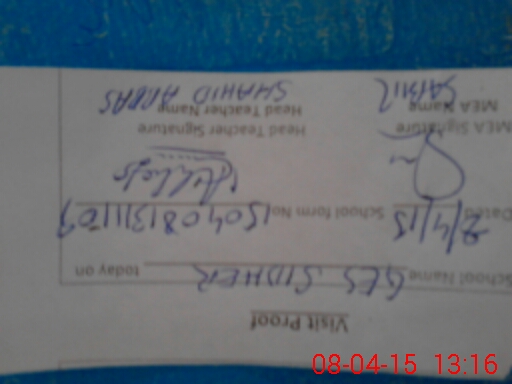 Visit Proof
School Name GES SIDHER today on
Dated 8/4/15 School form No 150408131109
MEA Signature Head Teacher Signature
MEA Name Head Teacher Name
SHAHID ABBAS
08-04-15 13:16